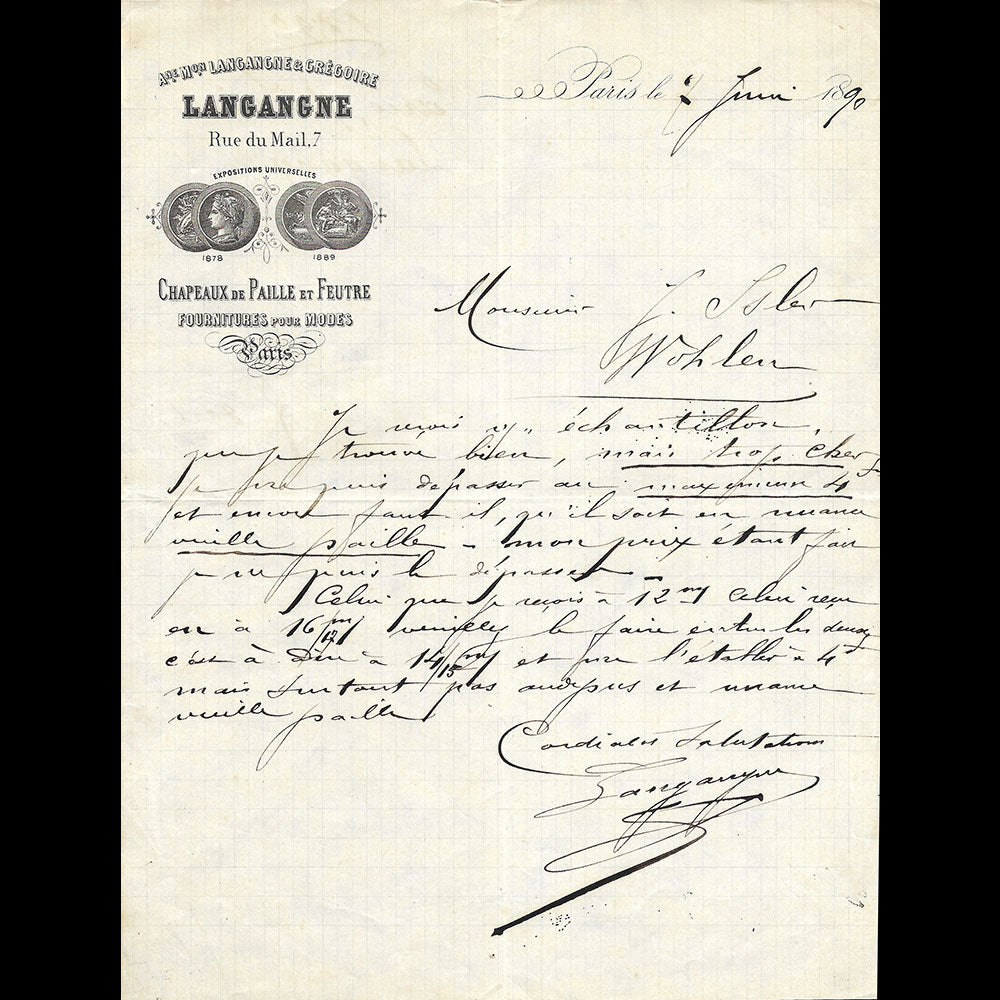 Anne Mon LANGANGNE & GRÉGOIRE
LANGANGNE
Rue du Mail, 7
EXPOSITIONS UNIVERSELLES
1878 1889
CHAPEAUX DE PAILLE ET FEUTRE
FOURNITURES POUR MODES
Paris
Paris le 7 Juin 1890
Monsieur J. Isler
Wohlen
Je reçois échantillon,
que je trouve bien, mais trop cher
je ne puis dépasser au maximum 4
et encore faut il, qu'il soit en nuance
vieille paille – mon prix étant fait
je ne puis le dépasser
Celui que je reçois à 12 m/ celui
en à 16/17 m/ veuillez le faire entre les deux
c'est à dire à 14/15 m/ et me l'établir à 4
mais surtout pas audessus et nuance
vieille paille
Cordiales Salutations
Langangne